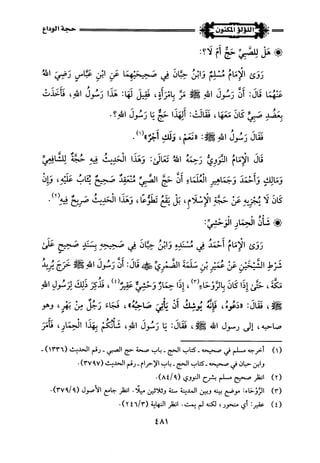 حجة الوداع
اللؤلؤ المكنون
هَلْ لِلصَّبِيِّ حَجٌّ أَمْ لَا؟:
رَوَى الْإِمَامُ مُسْلِمٌ وَابْنُ حِبَّانَ فِي صَحِيحَيْهِمَا عَنِ ابْنِ عَبَّاسٍ رَضِيَ اللهُ
عَنْهُمَا قَالَ: أَنَّ رَسُولَ اللهِ ﷺ مَرَّ بِامْرَأَةٍ، فَقِيلَ لَهَا: هَذَا رَسُولُ اللهِ، فَأَخَذَتْ
بِعَضُدِ صَبِيٍّ كَانَ مَعَهَا، فَقَالَتْ: أَلِهَذَا حَجٌّ يَا رَسُولَ اللهِ؟.
فَقَالَ رَسُولُ اللهِ ﷺ: «نَعَمْ، وَلَكِ أَجْرٌ»(١).
قَالَ الْإِمَامُ النَّوَوِيُّ رَحِمَهُ اللهُ تَعَالَى: وَهَذَا الْحَدِيثُ فِيهِ حُجَّةٌ لِلشَّافِعِيِّ
وَمَالِكٍ وَأَحْمَدَ وَجَمَاهِيرِ الْعُلَمَاءِ أَنَّ حَجَّ الصَّبِيِّ مُنْعَقِدٌ صَحِيحٌ يُثَابُ عَلَيْهِ، وَإِنْ
كَانَ لَا يُجْزِيهِ عَنْ حَجَّةِ الْإِسْلَامِ، بَلْ يَقَعُ تَطَوُّعًا، وَهَذَا الْحَدِيثُ صَرِيحٌ فِيهِ(٢).
شَأْنُ الْحِمَارِ الْوَحْشِيِّ:
رَوَى الْإِمَامُ أَحْمَدُ فِي مُسْنَدِهِ وَابْنُ حِبَّانَ فِي صَحِيحِهِ بِسَنَدٍ صَحِيحٍ عَلَى
شَرْطِ الشَّيْخَيْنِ عَنْ عُمَيْرِ بْنِ سَلَمَةَ الضَّمْرِيِّ ﷺ قَالَ: أَنَّ رَسُولَ اللهِ ﷺ خَرَجَ يُرِيدُ
مَكَّةَ، حَتَّى إِذَا كَانَ بِالرَّوْحَاءِ(٣)، إِذَا حِمَارٌ وَحْشِيٌّ عَقِيرٌ(٤)، فَذُكِرَ ذَلِكَ لِرَسُولِ اللهِ
ﷺ، فَقَالَ: «دَعُوهُ، فَإِنَّهُ يُوشِكُ أَنْ يَأْتِيَ صَاحِبُهُ»، فَجَاءَ رَجُلٌ مِنْ بَهْزٍ، وهو
صاحبه، إلى رسول الله ﷺ، فَقَالَ: يَا رَسُولَ اللهِ، شَأْنَكُمْ بِهَذَا الْحِمَارِ، فَأَمَرَ
(١) أخرجه مسلم في صحيحه ـ كتاب الحج ـ باب صحة حج الصبي ـ رقم الحديث (١٣٣٦) ـ
وابن حبان في صحيحه ـ كتاب الحج ـ باب الإحرام ـ رقم الحديث (٣٧٩٧).
(٢) انظر صحيح مسلم بشرح النووي (٨٤/٩).
(٣) الرَّوْحَاء: موضع بينه وبين المدينة ستة وثلاثين ميلًا. انظر جامع الأصول (٣٧٩/٩).
(٤) عقير: أي منحور، لكنه لم يمت. انظر النهاية (٢٤٦/٣).
٤٨١